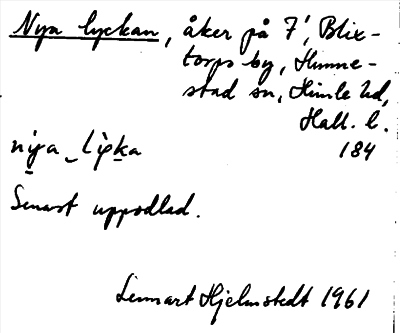 Nya lyckan, åker på 7', Blix-
torps by, Himme-
stad sn, Himle hd,
Hall. l.
184
nỳa ‿ lỳka
Senast uppodlad.
Lennart Hjelmstedt 1961